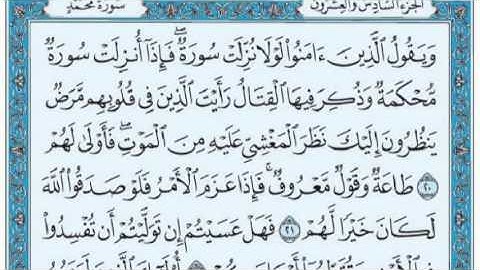 الجزء السادس والعشرون
سورة محمد
وَيَقُولُ ٱلَّذِينَ ءَامَنُوا۟ لَوْلَا نُزِّلَتْ سُورَةٌ ۖ فَإِذَآ أُنزِلَتْ سُورَةٌ
مُّحْكَمَةٌ وَذُكِرَ فِيهَا ٱلْقِتَالُ رَأَيْتَ ٱلَّذِينَ فِى قُلُوبِهِم مَّرَضٌ
يَنظُرُونَ إِلَيْكَ نَظَرَ ٱلْمَغْشِىِّ عَلَيْهِ مِنَ ٱلْمَوْتِ ۖ فَأَوْلَىٰ لَهُمْ
٢٠ طَاعَةٌ وَقَوْلٌ مَّعْرُوفٌ ۚ فَإِذَا عَزَمَ ٱلْأَمْرُ فَلَوْ صَدَقُوا۟ ٱللَّهَ
لَكَانَ خَيْرًا لَّهُمْ ٢١ فَهَلْ عَسَيْتُمْ إِن تَوَلَّيْتُمْ أَن تُفْسِدُوا۟